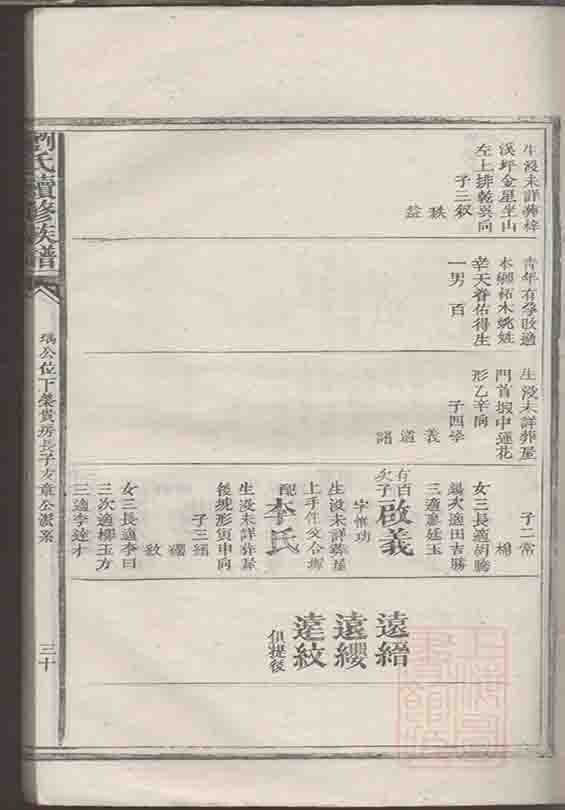 生沒未詳葬梓
溪坪金星坐山
左上排乾巽向
子三敘
秩
益
青年有孕改適
本鄉柘木姚姓
幸天眷佑得生
一男百
生沒未詳葬屋
門首塅中蓮花
形乙辛向
子四學
義
道
諸
子二常
棉
女三長適胡騰
鵾次適田吉勝
三適蕭廷玉
有百
次子
啟義
字惟功
生沒未詳葬屋
上手仵交合塅
配李氏
生沒未詳葬屋
後塊形寅申向
子三縉
纓
紋
女三長適李曰
三次適柳玉方
三適李達才
遠縉
遠纓
遠紋
俱提後
劉氏續修族譜
瑀公位下榮貴房長子友章公派系
三十